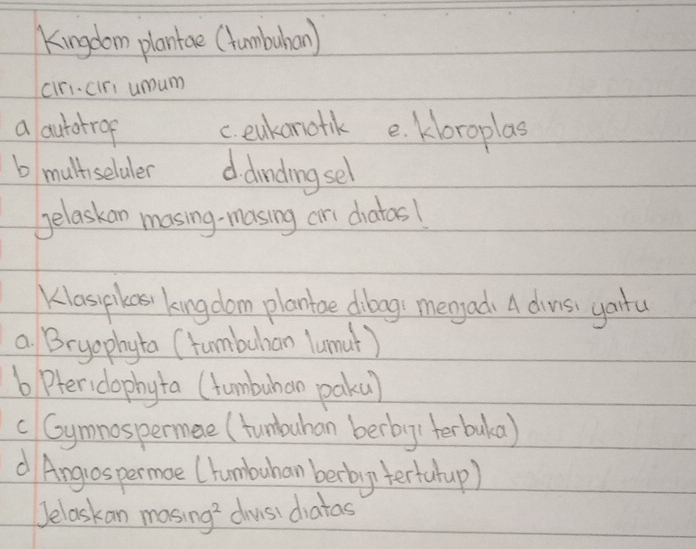 Kingdom plantae (tumbuhan)
ciri-ciri umum
a autotrof c. eukariotik e. kloroplas
b multiseluler d. dinding sel
jelaskan masing-masing ciri diatas!
Klasifikasi kingdom plantae dibagi menjadi 4 divisi yaitu
a. Bryophyta (tumbuhan lumut)
b Pteridophyta (tumbuhan paku)
c Gymnospermae (tumbuhan berbiji terbuka)
d Angiospermae (tumbuhan berbiji tertutup)
Jelaskan masing² divisi diatas